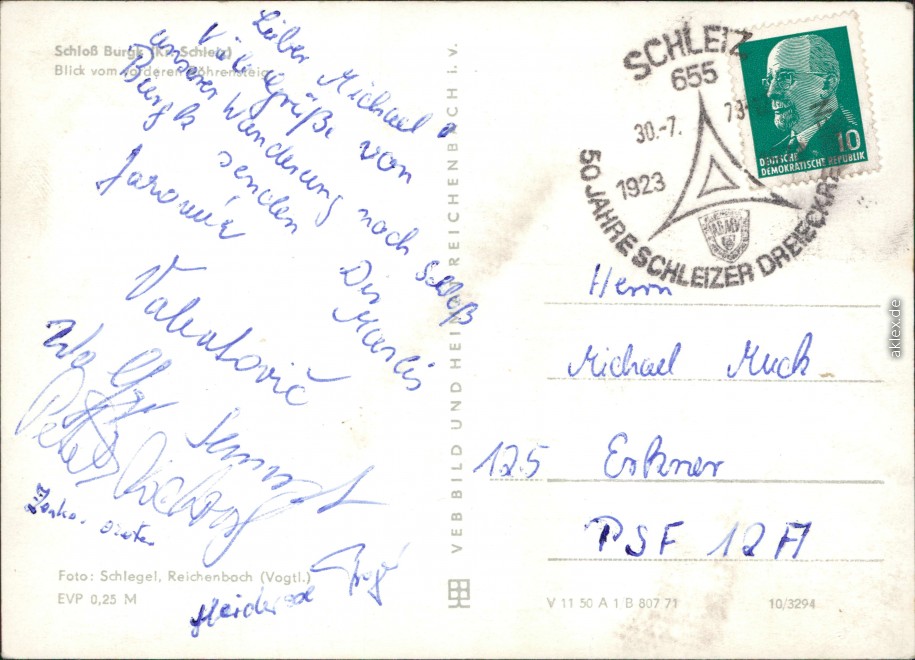 Schloß Burgk (Kr. Schleiz)
Blick vom vorderen Röhrensteig
Lieber Michael!
Viele Grüße von
unserer Wanderung nach Schloß
Burgk senden Dir
Jaromír Marcis
Valentovič
Peter
Foto: Schlegel, Reichenbach (Vogtl.)
EVP 0,25 M
VEB BILD UND HEIMAT REICHENBACH I. V.
SCHLEIZ
655
30.-7.
1923
50 JAHRE SCHLEIZER DREIECKRENNEN
10
DEUTSCHE
DEMOKRATISCHE REPUBLIK
Herrn
Michael Muck
125 Erkner
PSF 12A
V 11 50 A 1 B 807 71 10/3294
aklex.de